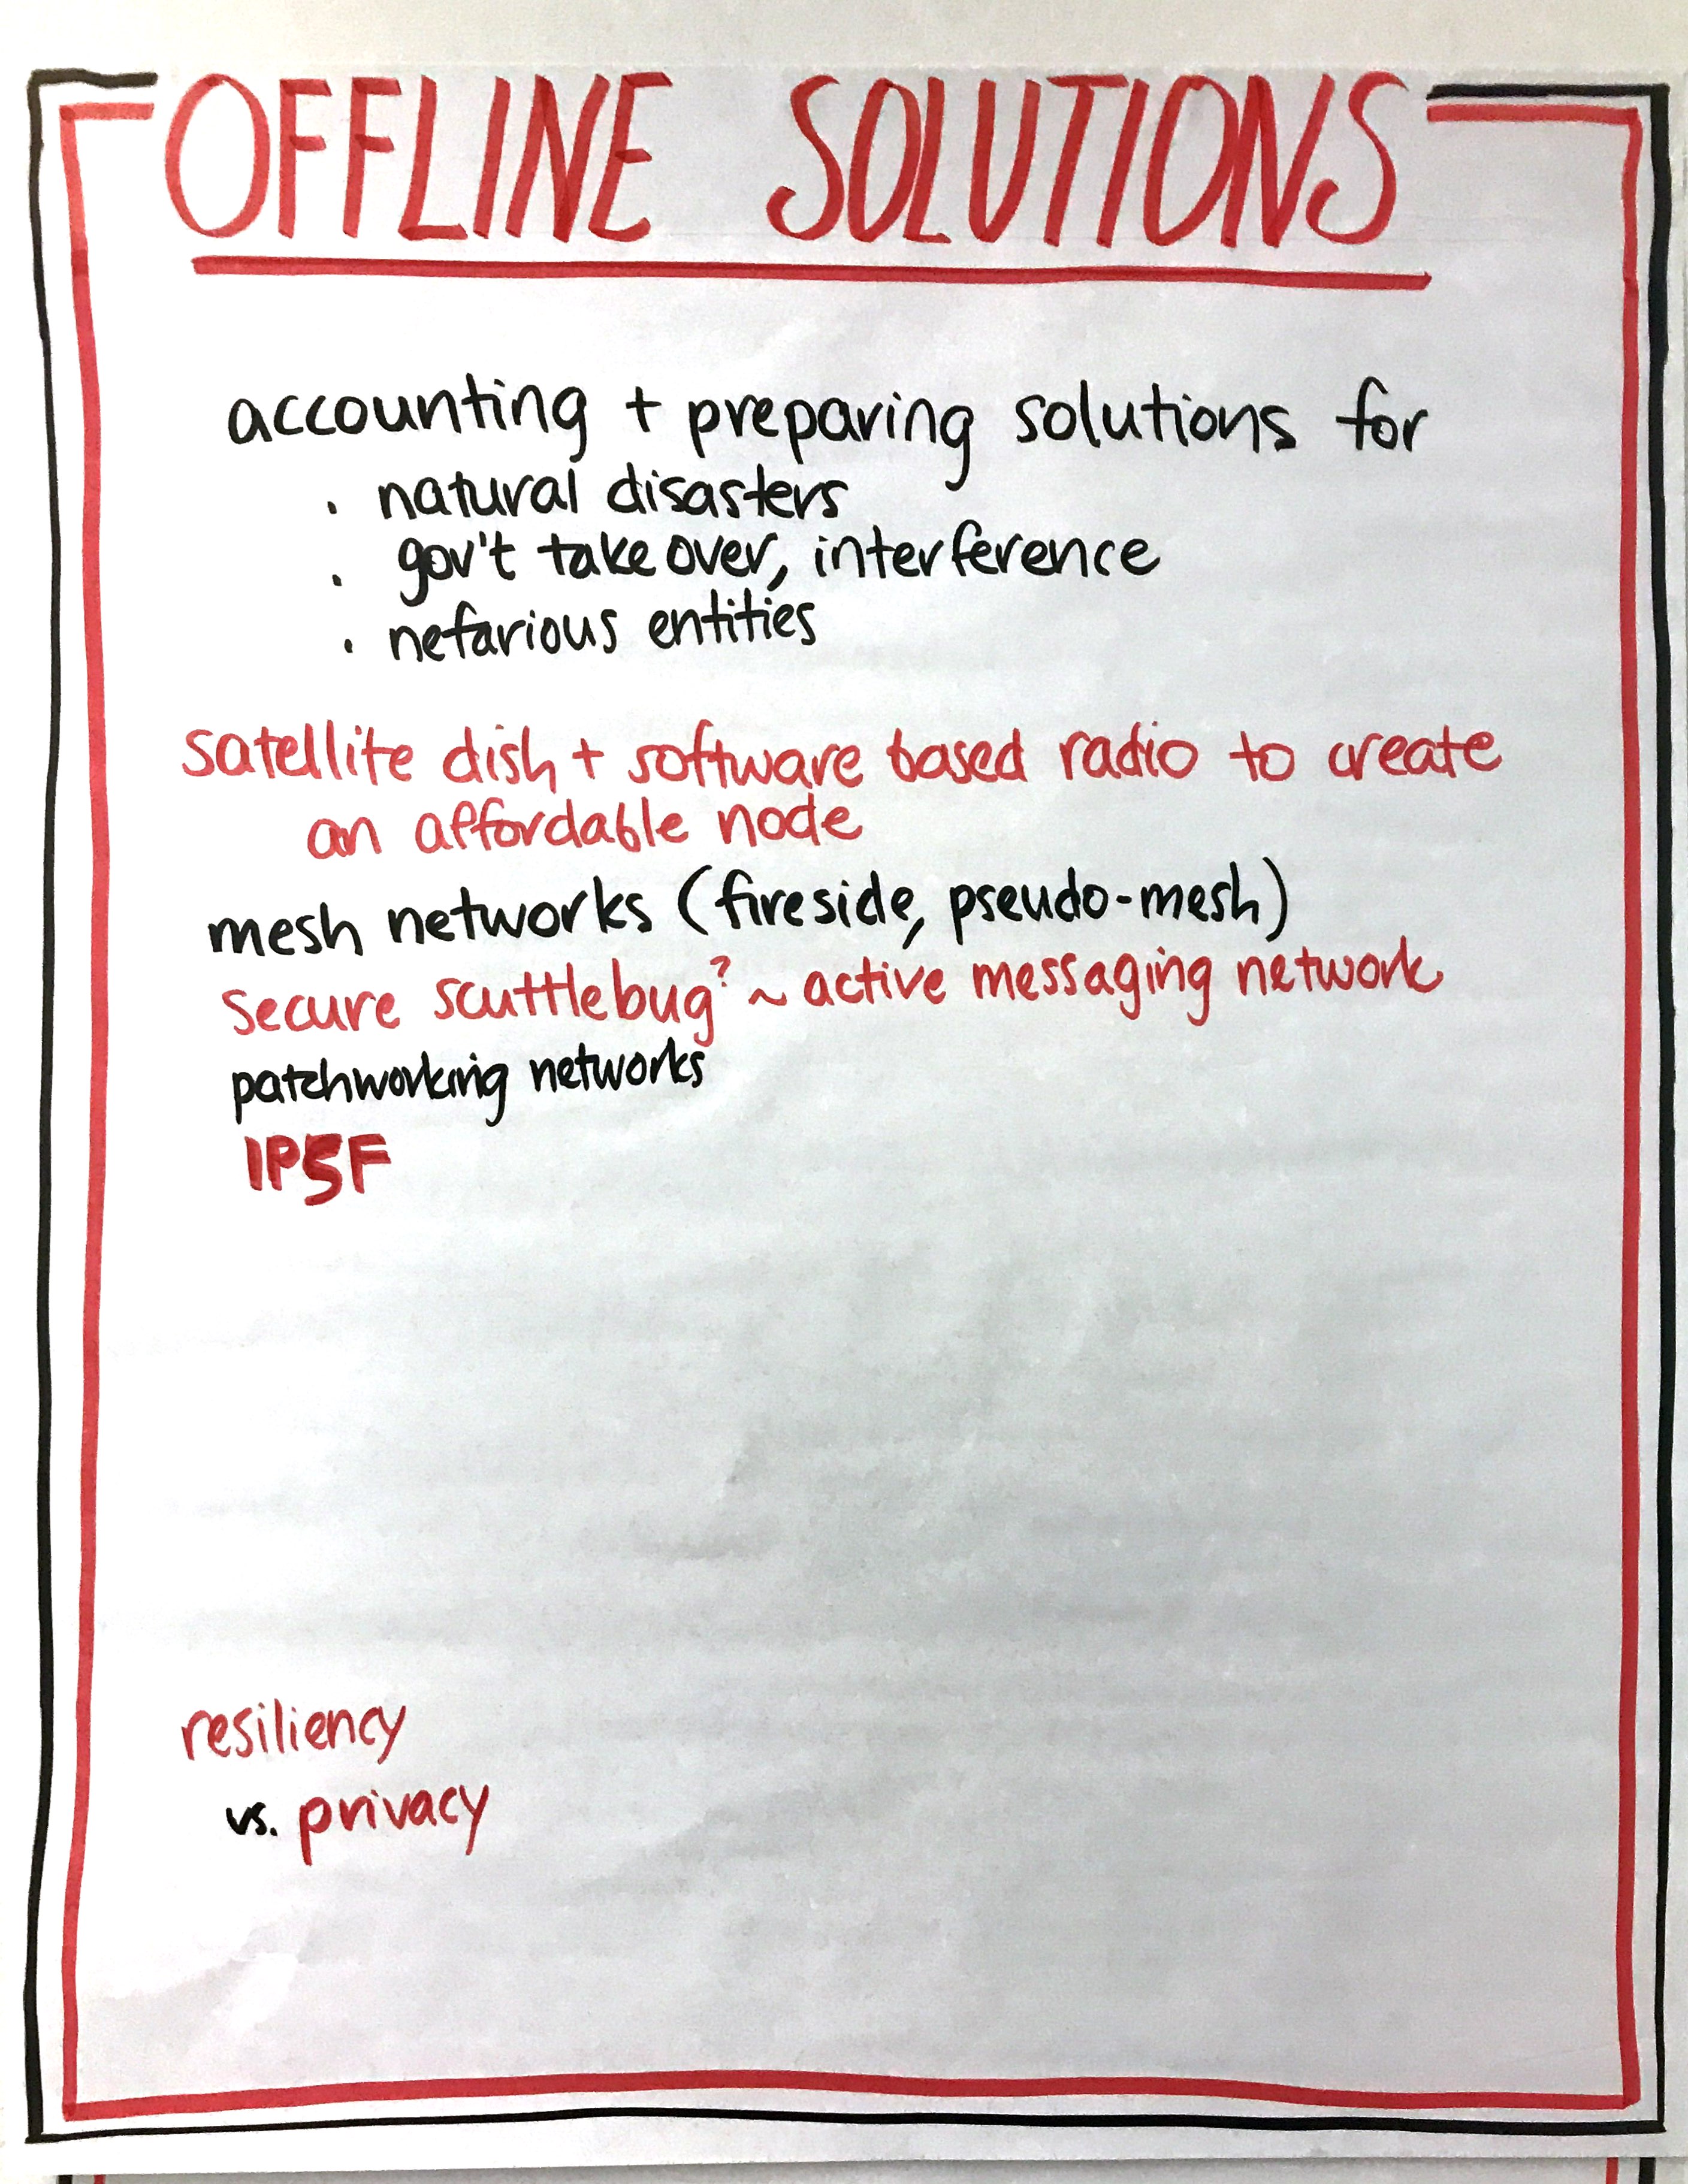 OFFLINE SOLUTIONS
accounting + preparing solutions for
. natural disasters
. gov't take over, interference
. nefarious entities
satellite dish + software based radio to create
an affordable node
mesh networks (fireside, pseudo-mesh)
secure scuttlebug? ~ active messaging network
patchworking networks
IPSF
resiliency
vs. privacy